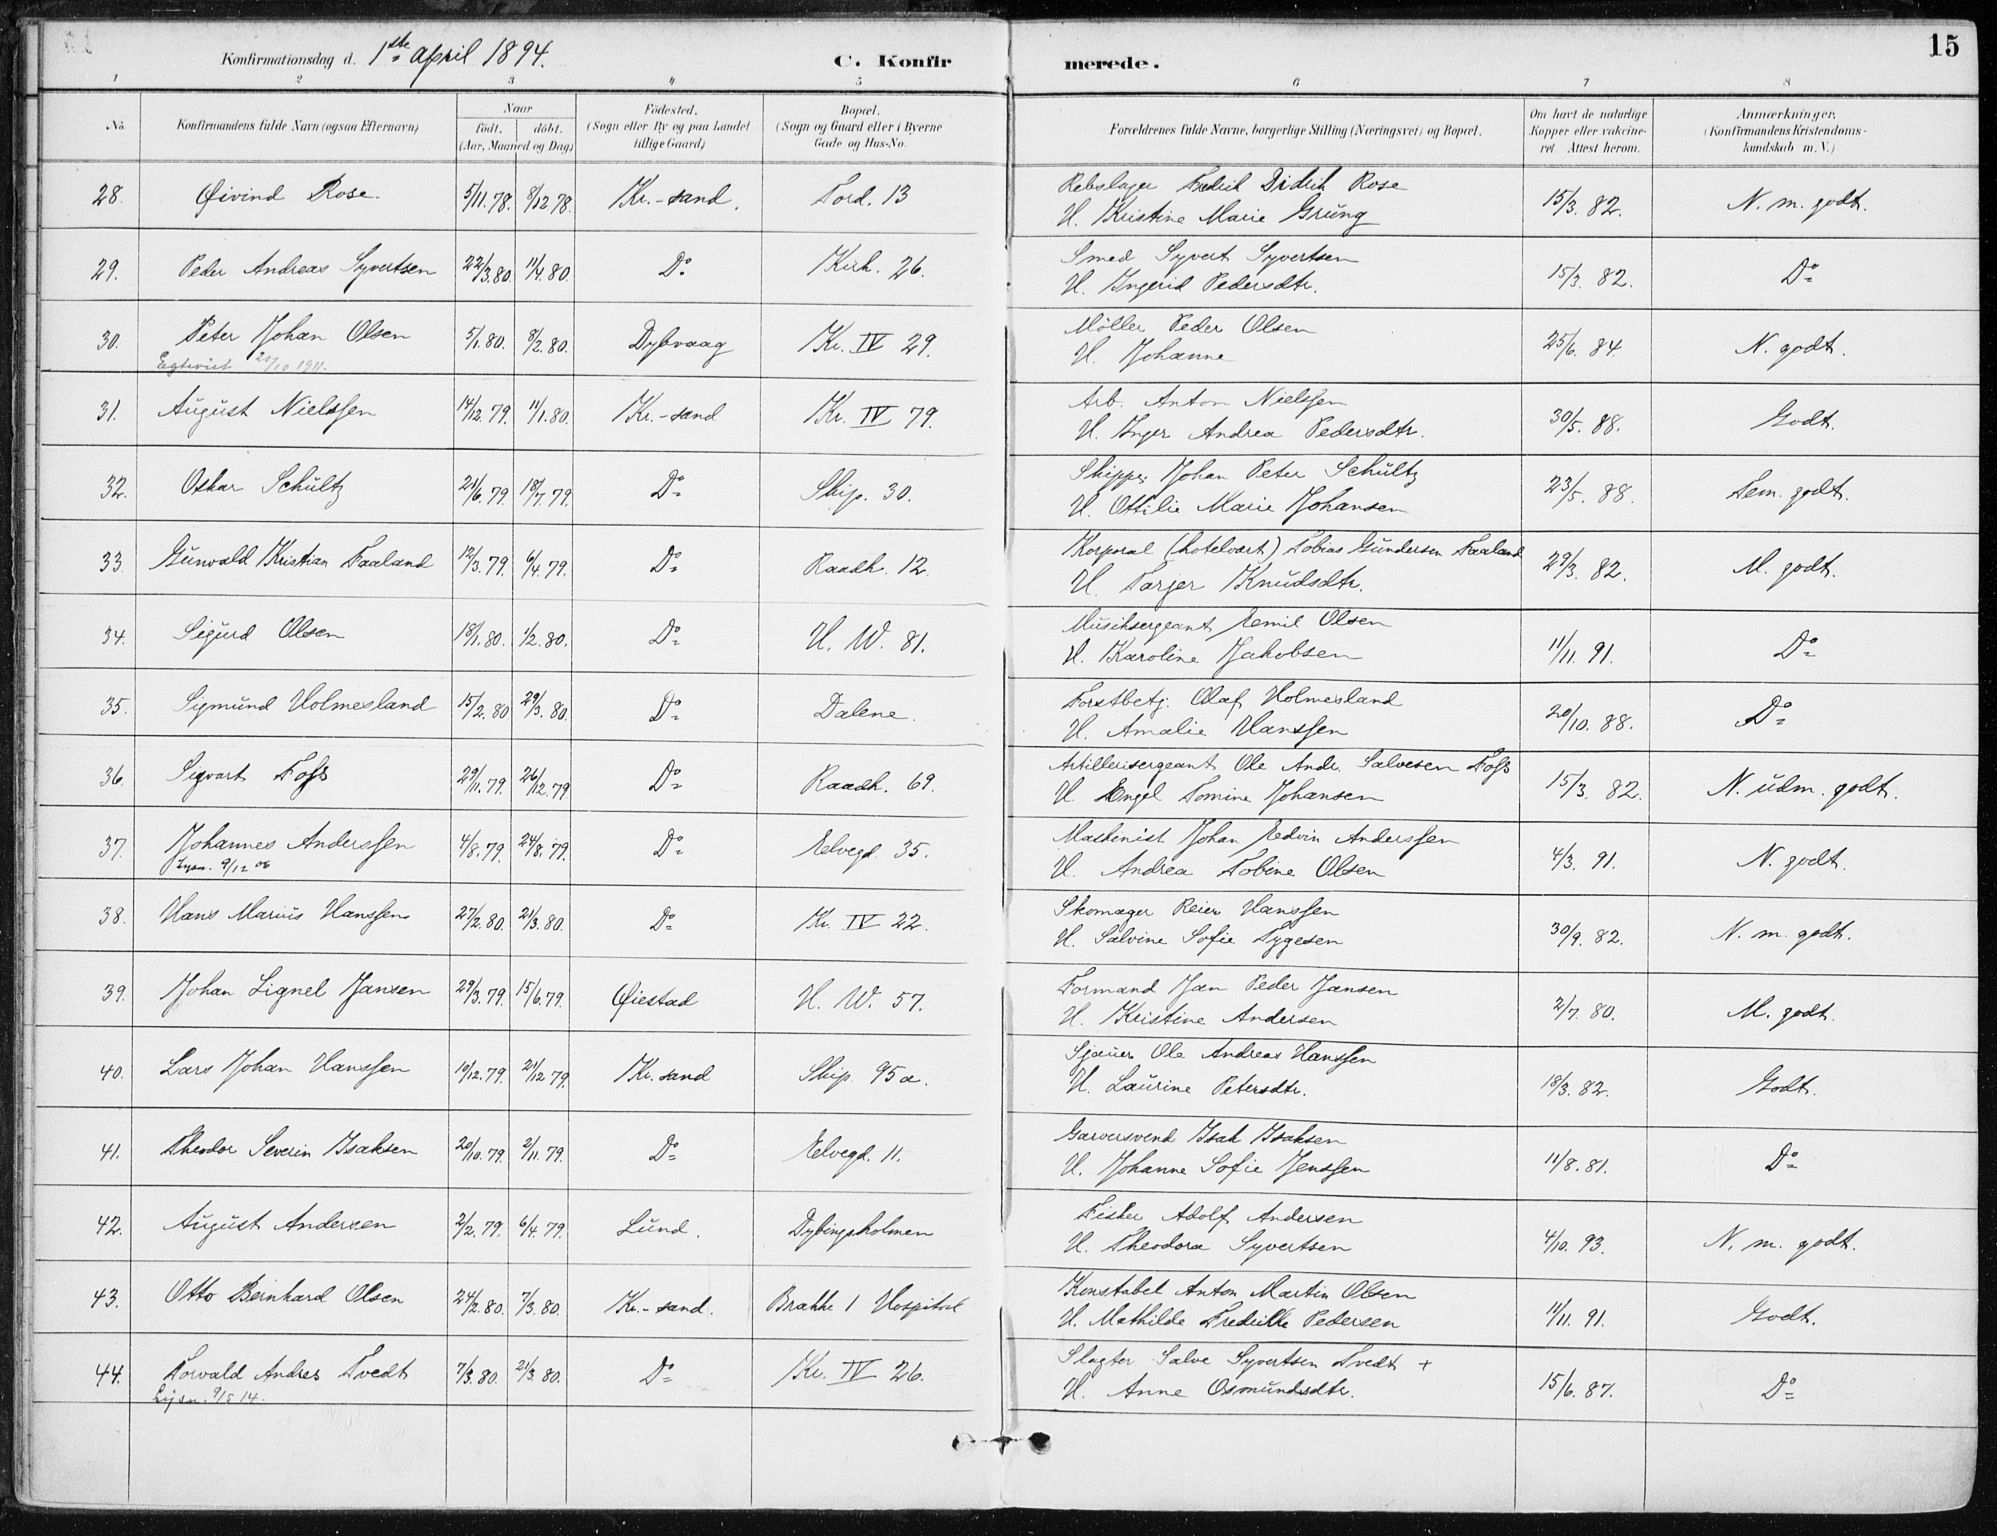 Konfirmationsdag d. 1ste April 1894. C. Konfirmerede. 15
1 2 3 4 5 6 7 8
No. Konfirmandens fulde Navn (ogsaa Efternavn) Naar födt. döbt. (Aar, Maaned og Dag) Födested. (Sogn eller By og paa Landet tillige Gaard) Bopæl. (Sogn og Gaard eller i Byerne Gade og Hus-No. Forældrenes fulde Navne, borgerlige Stilling (Næringsvei) og Bopæl. Om havt de naturlige Kopper eller vakcineret. Attest herom. Anmærkninger, (Konfirmandens Kristendomskundskab m. V.)
28. Øivind Rose. 5/11.78. 8/12 78. Kr.-sand. Tord. 13 Rebslager Fredrik Didrik Rose 15/3. 82. N. m. godt.
H. Kristine Marie Grung
29. Peder Andreas Syvertsen 22/3.80. 11/4.80. Do Kirk. 26. Smed Syvert Syvertsen 15/3. 82. Do
H. Ingerid Pedersdtr.
30. Peter Johan Olsen 5/1.80. 8/2.80. Dybvaag Kr. IV 29. Möller Peder Olsen 25/6. 84. N. godt.
Egteviet 20/10 1911. H. Johanne
31. August Nielssen 14/12.79. 11/1.80. Kr.-sand Kr. IV 79. Arb. Anton Nielssen 30/5. 88. Godt.
H. Inger Andrea Pedersdtr.
32. Oskar Schultz 21/6.79 18/7.79. Do Skip. 30. Skipper Johan Peter Schultz 23/5. 88. Tem. godt.
H. Ottilie Marie Johansen
33. Gunvald Kristian Faaland 12/3.79. 6/4.79. Do Raadh. 12. Korporal (hotelvært) Tobias Gundersen Faaland 29/3. 82. M. godt.
H. Tarjer Knudsdtr.
34. Sigurd Olsen 18/1.80. 1/2.80. Do H. W. 81. Musiksergeant Emil Olsen 11/11. 91. Do
H. Karoline Jakobsen
35. Sigmund Holmesland 15/2.80 29/3.80. Do Dalene. Forstbetj. Olaf Holmesland 20/10. 88. Do
H. Amalie Hanssen
36. Sigvart Foss 29/11.79. 26/12.79 Do Raadh. 69. Artillerisergeant Ole Andr. Salvesen Foss 15/3. 82. N. udm. godt.
H. Engel Tomine Johansen
37. Johannes Anderssen 4/8.79. 24/8.79. Do Elvegd. 35. Maskinist Johan Edvin Anderssen 4/3. 91. N. godt.
Lysn. 9/12 06 H. Andrea Tobine Olsen
38. Hans Marius Hanssen 27/2.80. 21/3.80. Do Kr. IV 22. Skomager Reier Hanssen 30/9. 82. N. m. godt.
H. Salvine Sofie Tygesen
39. Johan Lignel Jansen 29/3.79. 15/6.79. Øiestad H. W. 57. Formand Jan Peder Jansen 2/7. 80. M. godt.
H. Kristine Andersen
40. Lars Johan Hanssen 10/12.79. 21/12 79. Kr.sand Skip. 95a. Sjauer Ole Andreas Hanssen 18/3. 82. Godt.
H. Laurine Petersdtr.
41. Theodor Severin Isaksen 20/10.79. 2/11.79. Do Elvegd. 11. Garversvend Isak Isaksen 11/8. 81. Do
H. Johanne Sofie Jenssen
42. August Andersen 2/2.79. 6/4.79. Lund. Dybingsholmen Fisker Adolf Andersen 4/10. 93. N. m. godt.
H. Theodora Syvertsen
43. Otto Bernhard Olsen 24/2.80. 7/3.80. Kr.-sand. Brakke 1 Hospital Konstabel Anton Martin Olsen 11/11. 91. Godt.
H. Mathilde Fredrikke Pedersen
44. Torvald Andres Tvedt 7/3.80. 21/3.80. Do Kr. IV 26. Slagter Salve Syvertsen Tvedt + 15/6. 87. Do
Lysn. 9/5 14. H. Anne Osmundsdtr.